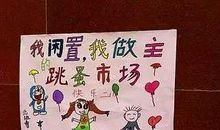 我闲置,我做主
的跳蚤市场
快乐